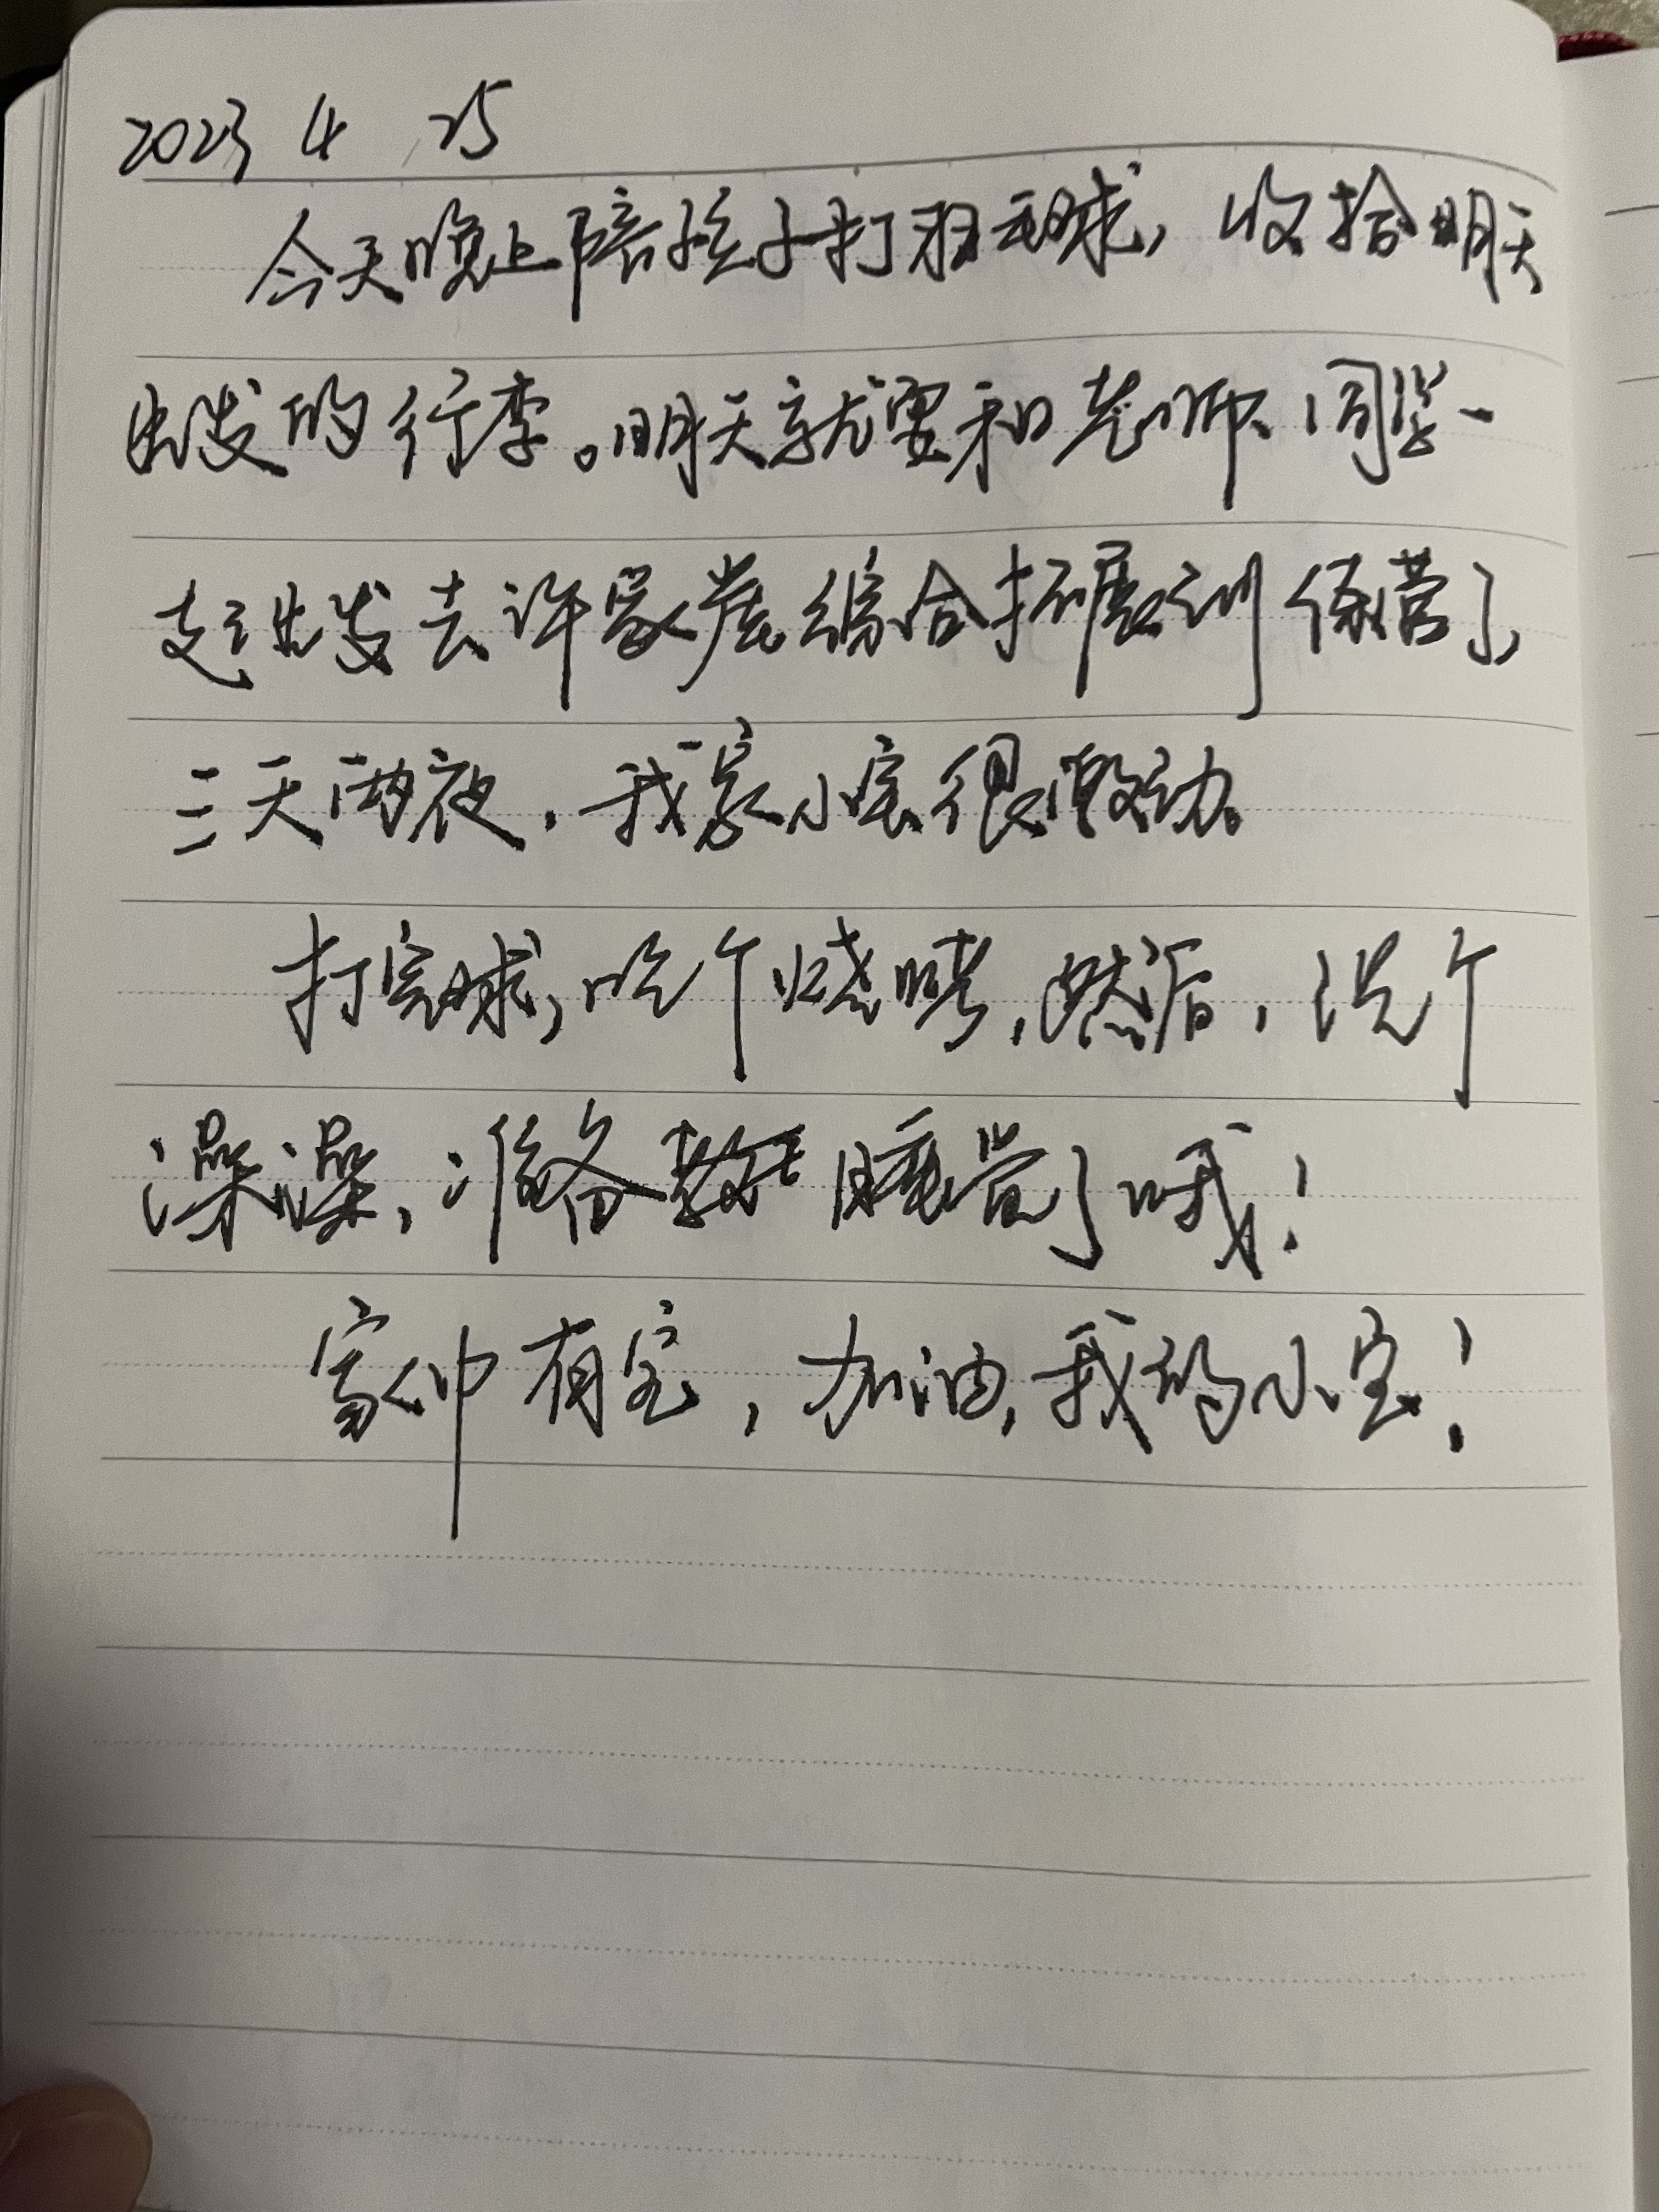 2023 4 25
今天晚上陪孩子打羽毛球，收拾明天
出发的行李。明天就要和老师、同学一
起出发去许家崖综合拓展训练营了，
三天两夜，我家小宝很激动。
打完球，吃个烧烤，然后，洗个
澡澡，准备睡觉了哦！
家中有宝，加油，我的小宝！